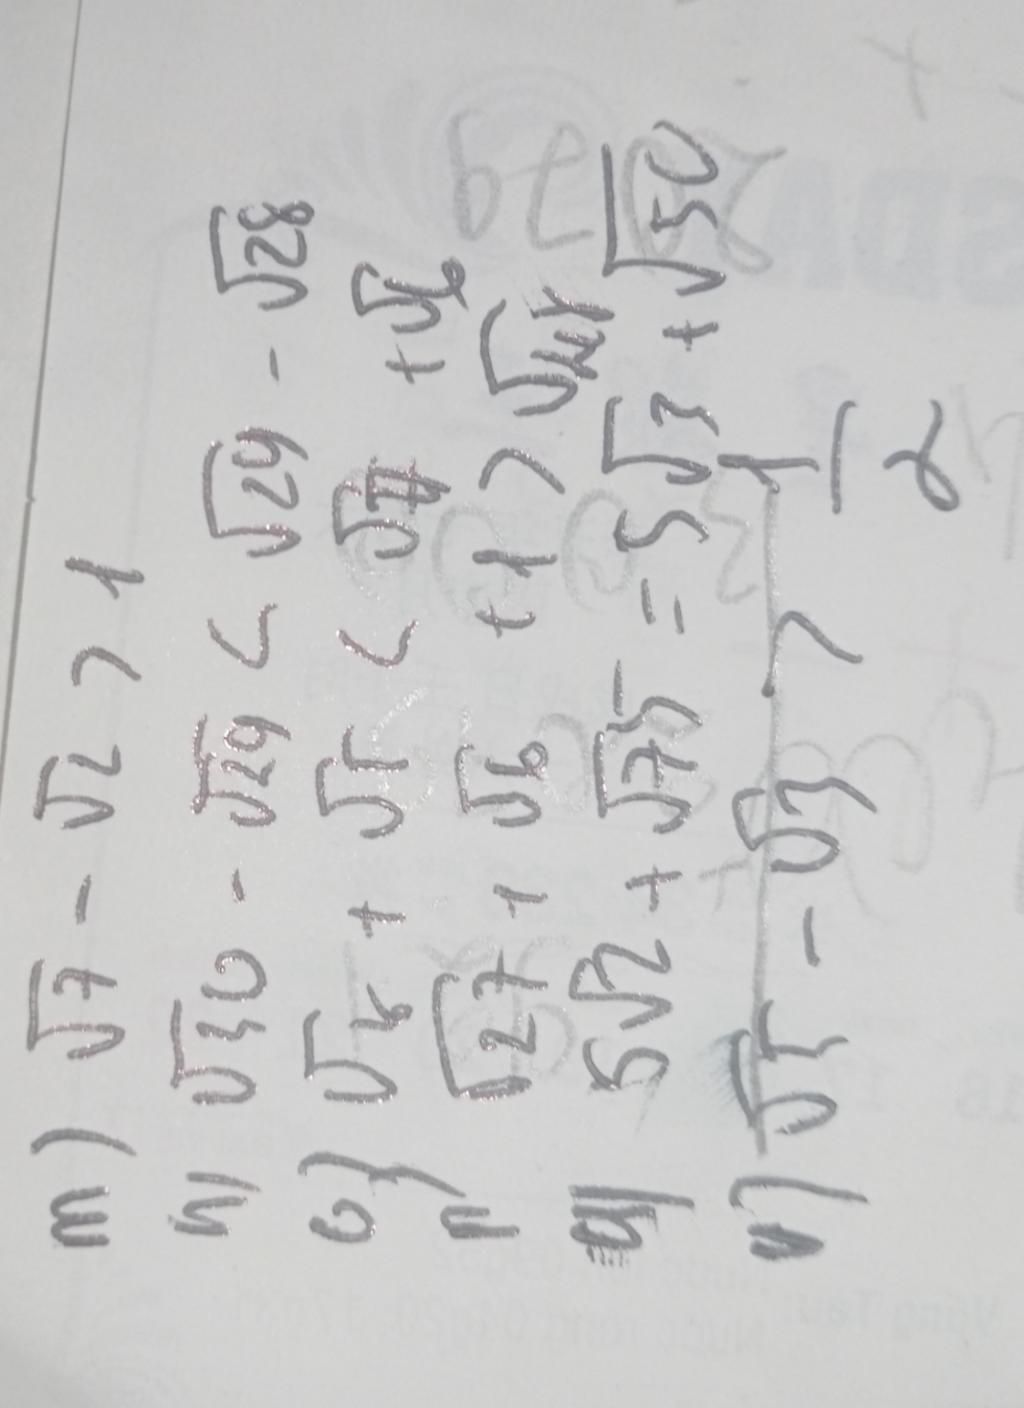 m) √7 - √2 > 1
n) √30 - √29 < √29 - √28
o) √8 + √5 < √7 + √6
p) √27 + √6 + 1 > √48
q) 5√2 + √75 = 5√3 + √50
√5 - √3 > 1/2
79